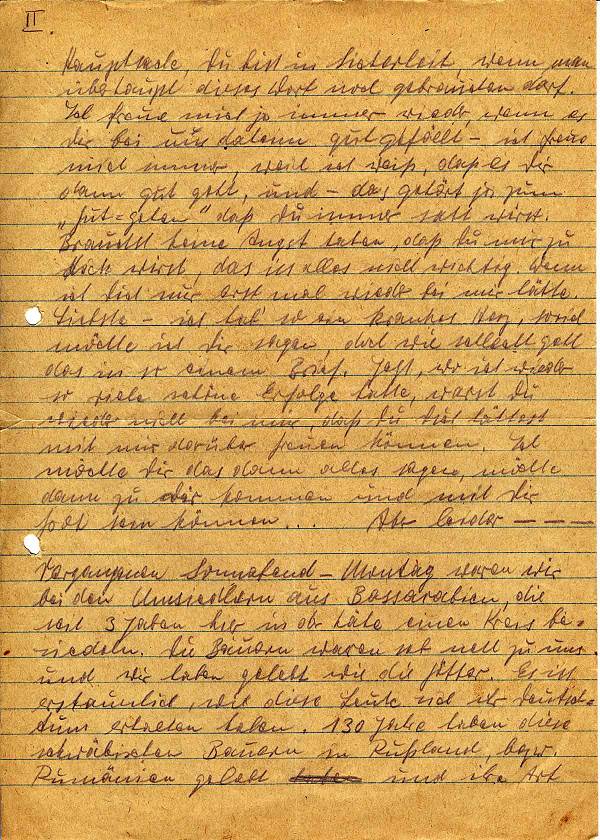 II
Hauptsache, Du bist in Sicherheit, wenn man
überhaupt dieses Wort noch gebrauchen darf.
Ich freue mich ja immer wieder, wenn es
Dir bei uns daheim gut gefällt – ich freue
mich immer, weil ich weiß, daß es Dir
dann gut geht, und – das gehört ja zum
„Gut=gehen" daß Du immer satt wirst.
Brauchst keine Angst haben, daß Du mir zu
dick wirst, das ist alles nicht wichtig, wenn
ich Dich nur erst mal wieder bei mir hätte.
Liebste – ich hab' so ein krankes Herz, soviel
möchte ich Dir sagen, doch wie schlecht geht
das in so einem Brief. Jetzt, wo ich wieder
so viele schöne Erfolge hatte, warst Du
wieder nicht bei mir, daß Du Dich hättest
mit mir darüber freuen können. Ich
möchte Dir das dann alles sagen, möchte
dann zu Dir kommen und mit Dir
sein können... Aber leider – – –
Vergangenen Sonnabend – Montag waren wir
bei den Umsiedlern aus Bessarabien, die
seit 3 Jahren hier in der Nähe einen Kreis be=
siedeln. Die Bauern waren sehr nett zu uns
und wir haben gelebt wie die Götter. Es ist
erstaunlich, wie diese Leute sich ihr Deutsch=
tum erhalten haben. 130 Jahre haben diese
schwäbischen Bauern in Rußland, bezw.
Rumänien gelebt und ihre Art